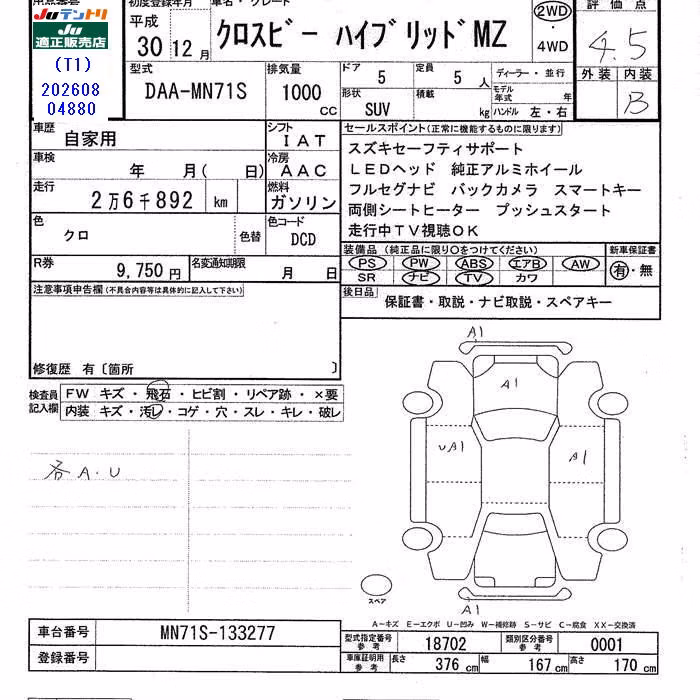 Juテントリ
Ju
適正販売店
(T1)
202608
04880
初度登録年月
平成
30 12 月
車名・グレード
クロスビー ハイブリッドMZ
2WD
・
4WD
評価点
4.5
外装 内装
B
型式
DAA-MN71S
排気量
1000
cc
ドア 5
定員 5 人
ディーラー・並行
形状
SUV
積載
kg
モデル年式 年
ハンドル 左・右
車歴
自家用
シフト
IAT
車検
年 月( 日)
冷房
AAC
走行
2万6千892 km
燃料
ガソリン
色
クロ
色替
色コード
DCD
R券
9,750 円
名変通知期限
月 日
セールスポイント(正常に機能するものに限ります)
スズキセーフティサポート
LEDヘッド 純正アルミホイール
フルセグナビ バックカメラ スマートキー
両側シートヒーター プッシュスタート
走行中TV視聴OK
装備品 (純正品に限り○をつけてください)
新車保証書
PS PW ABS エアB AW
SR ナビ TV カワ
有・無
後日品
保証書・取説・ナビ取説・スペアキー
注意事項申告欄(不具合内容等は具体的に記入して下さい)
修復歴 有〔箇所 〕
検査員
記入欄
FW キズ・飛石・ヒビ割・リペア跡・×要
内装 キズ・汚レ・コゲ・穴・スレ・キレ・破レ
各A.U
A1
A1
UA1
A1
A1
スペア
A-キズ E-エクボ U-凹み W-補修跡 S-サビ C-腐食 XX-交換済
車台番号
MN71S-133277
登録番号
型式指定番号
参考
18702
類別区分番号
参考
0001
車庫証明用
参考
長さ 376 cm
幅 167 cm
高さ 170 cm